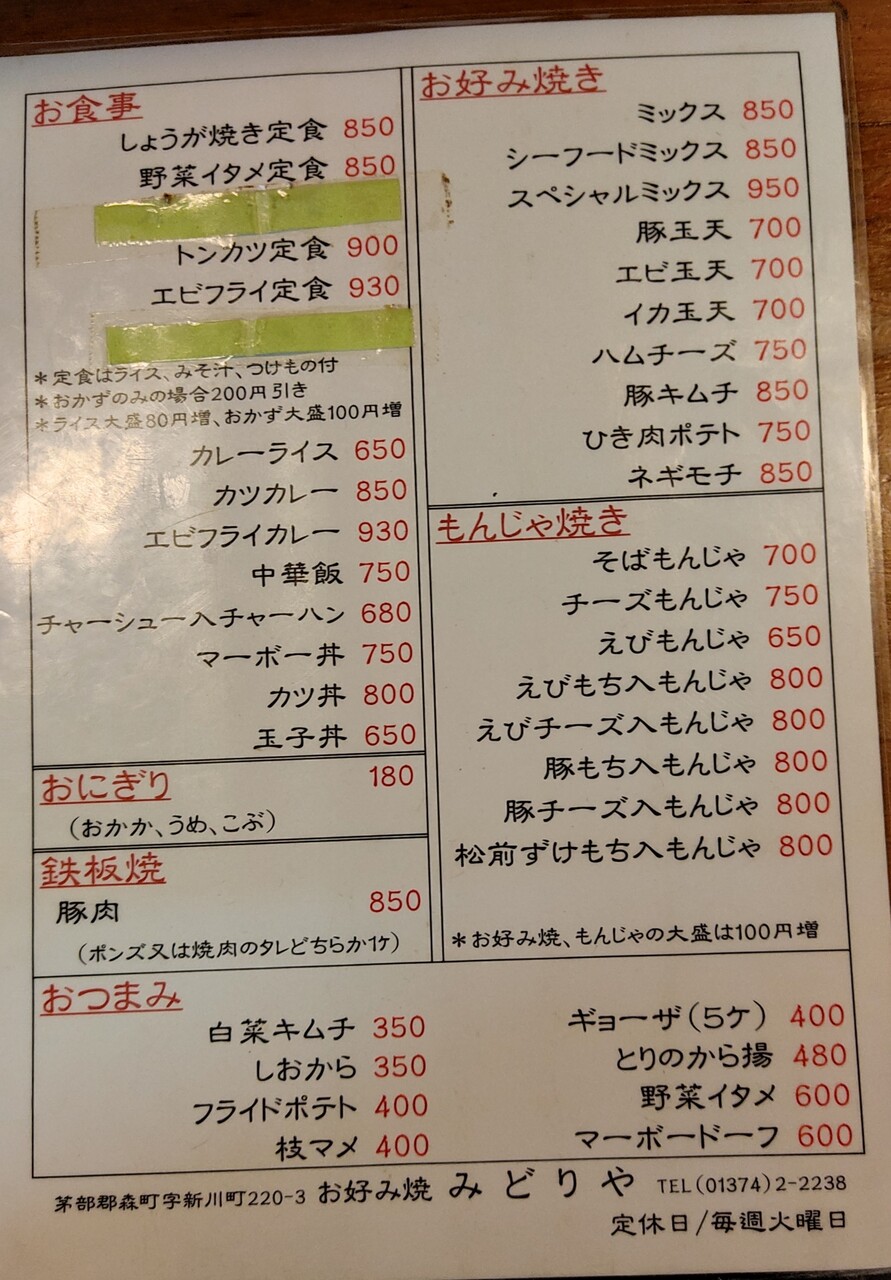 お食事
しょうが焼き定食 850
野菜イタメ定食 850
トンカツ定食 900
エビフライ定食 930
*定食はライス、みそ汁、つけもの付
*おかずのみの場合200円引き
*ライス大盛80円増、おかず大盛100円増
カレーライス 650
カツカレー 850
エビフライカレー 930
中華飯 750
チャーシュー入チャーハン 680
マーボー丼 750
カツ丼 800
玉子丼 650
おにぎり 180
(おかか、うめ、こぶ)
鉄板焼
豚肉 850
(ポンズ又は焼肉のタレどちらか1ケ)
お好み焼き
ミックス 850
シーフードミックス 850
スペシャルミックス 950
豚玉天 700
エビ玉天 700
イカ玉天 700
ハムチーズ 750
豚キムチ 850
ひき肉ポテト 750
ネギモチ 850
もんじゃ焼き
そばもんじゃ 700
チーズもんじゃ 750
えびもんじゃ 650
えびもち入もんじゃ 800
えびチーズ入もんじゃ 800
豚もち入もんじゃ 800
豚チーズ入もんじゃ 800
松前ずけもち入もんじゃ 800
*お好み焼、もんじゃの大盛は100円増
おつまみ
白菜キムチ 350
しおから 350
フライドポテト 400
枝マメ 400
ギョーザ(5ケ) 400
とりのから揚 480
野菜イタメ 600
マーボードーフ 600
茅部郡森町字新川町220-3 お好み焼 みどりや TEL(01374)2-2238
定休日/毎週火曜日